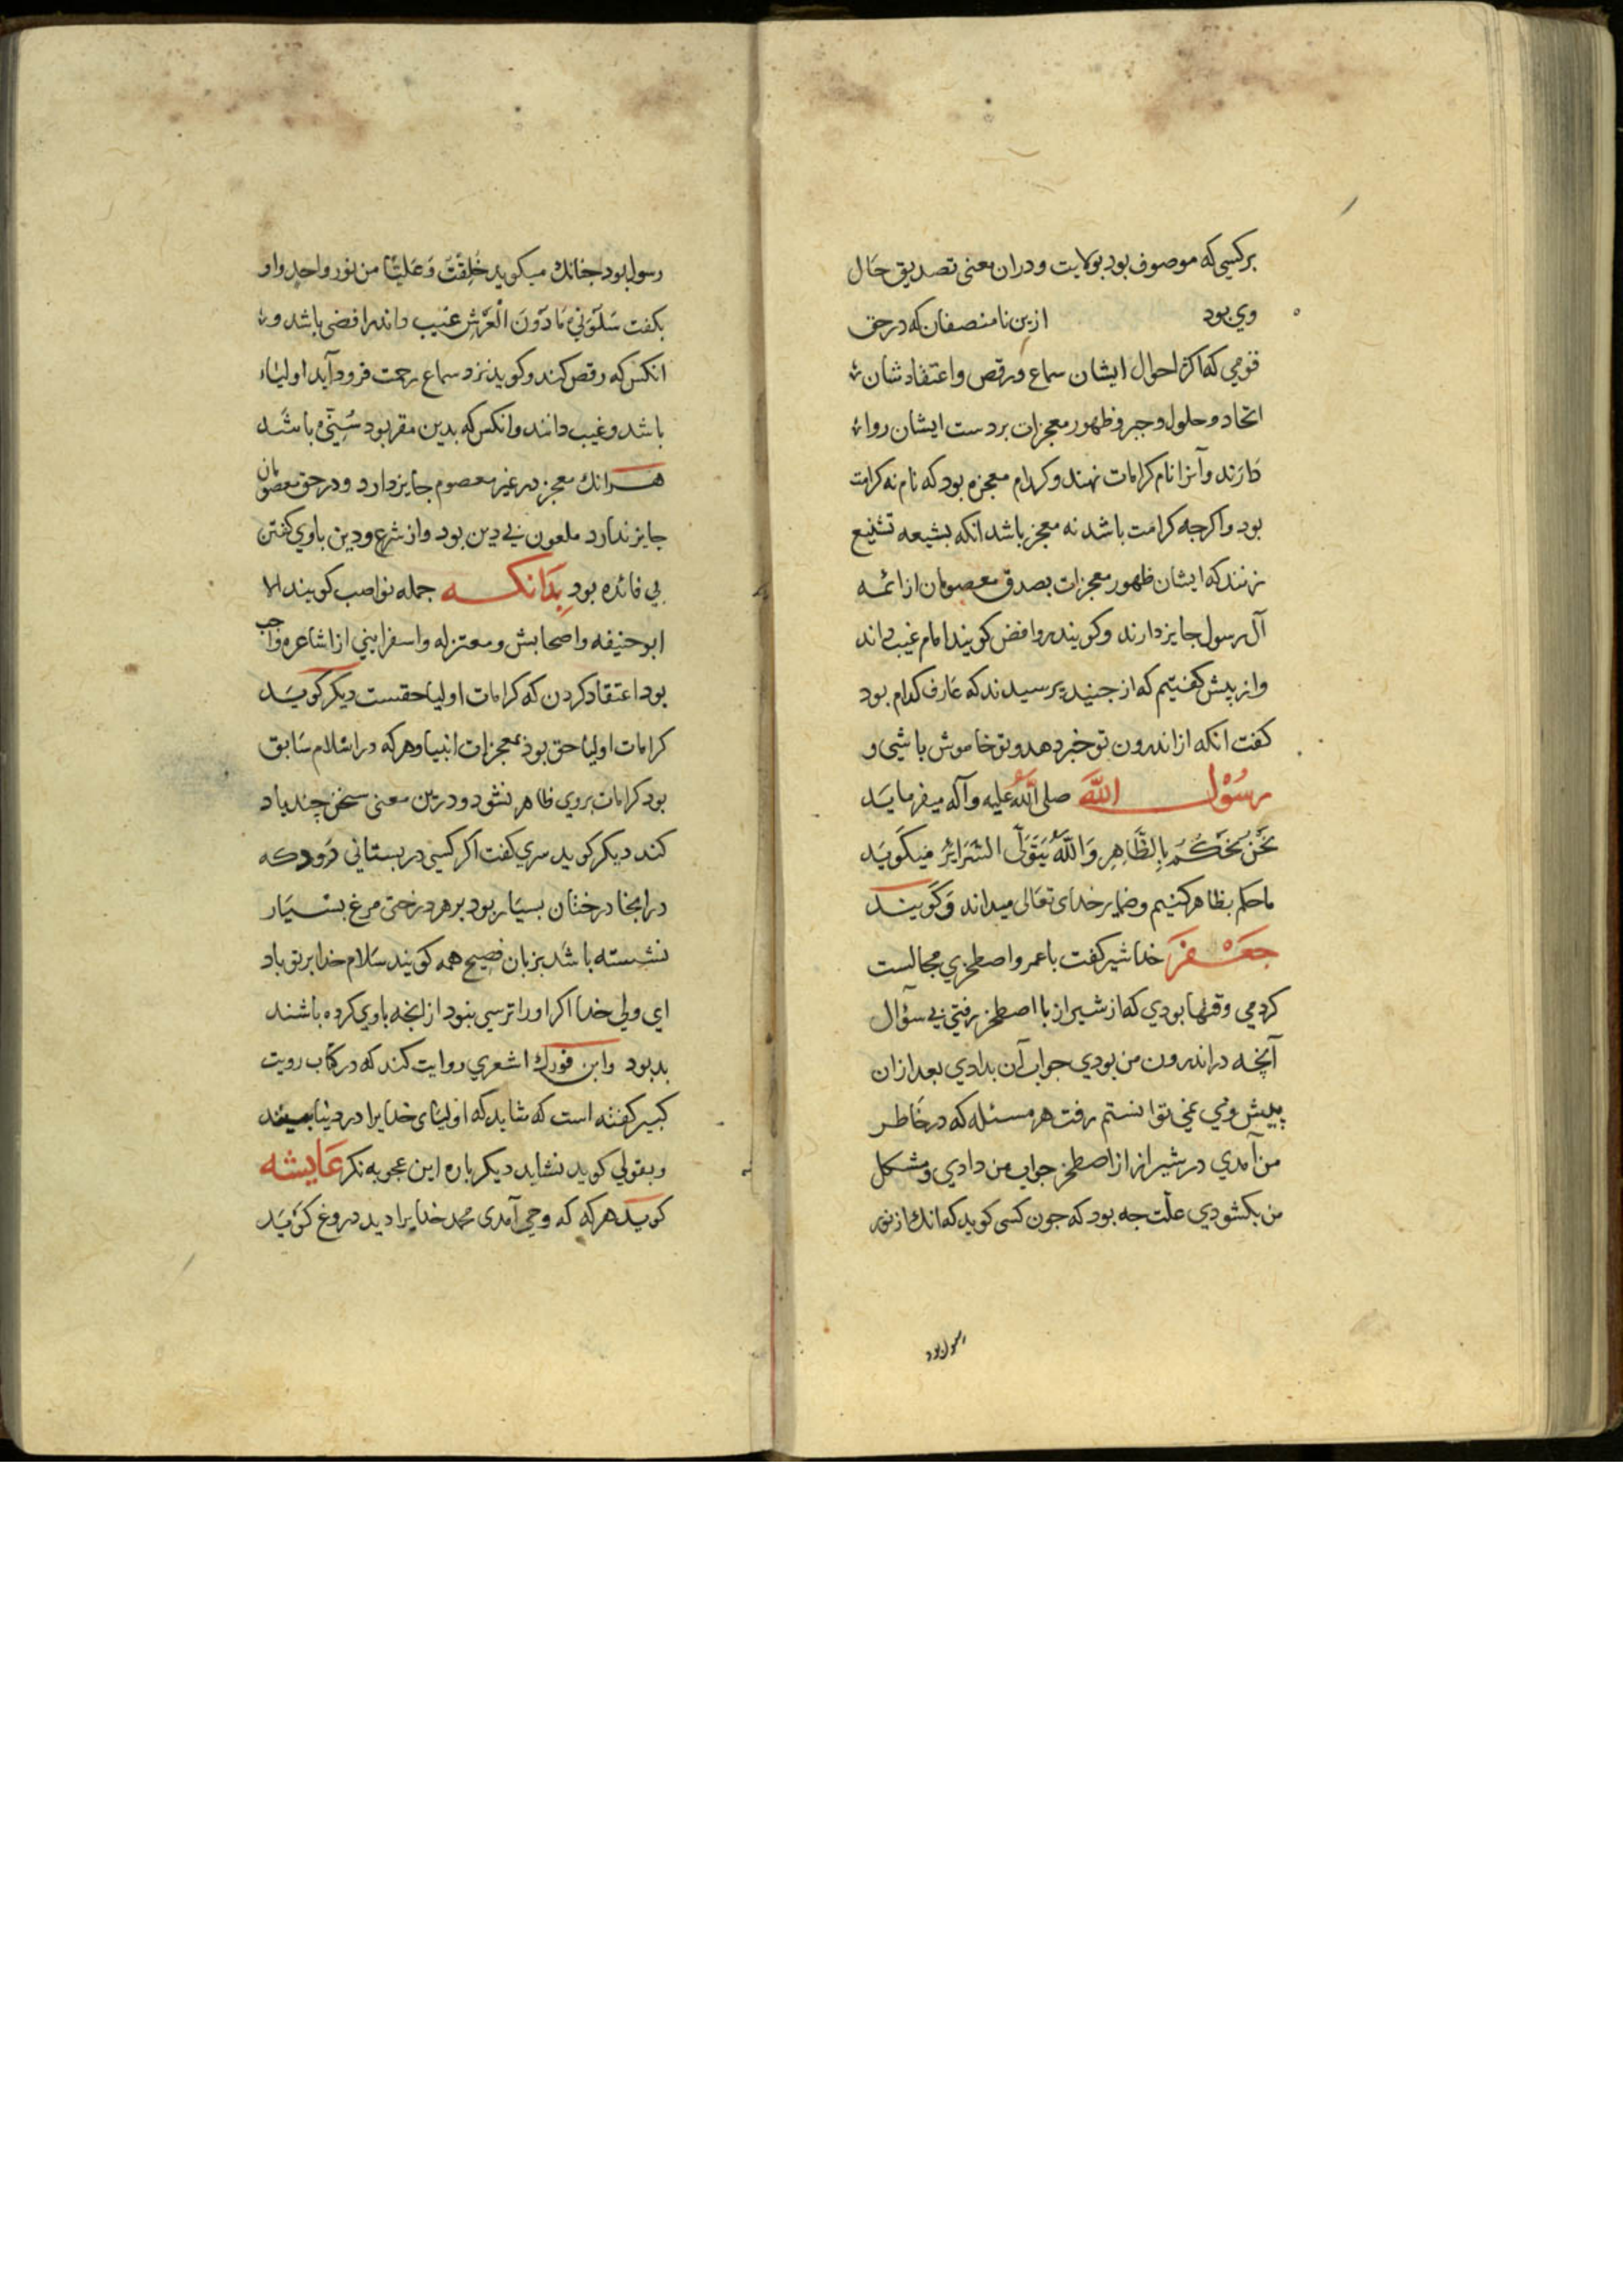 برکسی که موصوف بود بولایت ودران معنی تصدیق حال
وی بود ازین نا منصفان که درحق
قومی که اکثر احوال ایشان سماع ورقص واعتقاد شان
اتحاد وحلول وجبر وظهور معجزات بردست ایشان روا
دارند وآنرا نام کرامات نهند وکدام معجزه بود که نام نه کرامت
بود واکرجه کرامت باشد نه معجز باشد انکه بشیعه تشنیع
زنند که ایشان ظهور معجزات بصدق معصومان از ائمه
آل رسول جایز دارند وکویند روافض کویند امام غیب داند
واز پیش کفتیم که از جنید پرسیدند که عارف کدام بود
کفت انکه از اندرون تو خبر دهد وتو خاموش باشی و
رسول الله صلی الله علیه وآله میفرماید
نَحْنُ نَحْکُمُ بِالظَّاهِرِ وَاللّٰهُ یَتَوَلَّی السَّرَایِرَ میکوید
ما حکم بظاهر کنیم وضمایر خدای تعالی میداند وکویند
جعفر خدا شیر کفت با عمرو اصطخری مجالست
کردمی وقتها بودی که از شیراز با اصطخر رفتی بی سؤال
آنچه در اندرون من بودی جواب آن بدادی بعد ازان
پیش وی نمی توانستم رفت هر مسئله که در خاطر
من آمدی در شیراز از اصطخر جواب من دادی ومشکل
من بکشودی علّت جه بود که جون کسی کوید که انك از نور
رسول بود
رسول بود جنانك میکوید خُلِقْتُ وَعَلِیّا من نور واحد واو
بکفت سَلُونِی مَا دُونَ الْعَرْشِ غیب داند رافضی باشد و
انکس که رقص کند وکوید نزد سماع رحمت فرود آید اولیاء
باشد وغیب دانند وانکس که بدین مقر بود سُنّی باشد
هرانك معجز در غیر معصوم جایز دارد ودرحق معصومان
جایز ندارد ملعون بی دین بود واز شرع ودین باوی کفتن
بی فائده بود بدانکه جمله نواصب کویند الا
ابو حنیفه واصحابش ومعتزله واسفراینی از اشاعره واجب
بود اعتقاد کردن که کرامات اولیا حقست دیکر کوید
کرامات اولیا حق بود بمعجزات انبیا وهرکه در اسلام سابق
بود کرامات بروی ظاهر نشود ودرین معنی سخن چند یاد
کند دیکر کوید سری کفت اکر کسی در بستانی رود که
درانجا درختان بسیار بود برهر درختی مرغ بسیار
نشسته باشد بزبان فصیح همه کویند سلام خدا بر تو باد
ای ولی خدا اکر اورا ترسی نبود از انجه باوی کرده باشند
بد بود وابن فورك اشعری روایت کند که در کتاب رویت
کبیر کفته است که شاید که اولیای خدایرا در دنیا بینند
وبقولی کوید نشاید دیکرباره این عجوبه نکر عایشه
کوید هرکه که وحی آمدی محمد خدایرا دید دروغ کوید